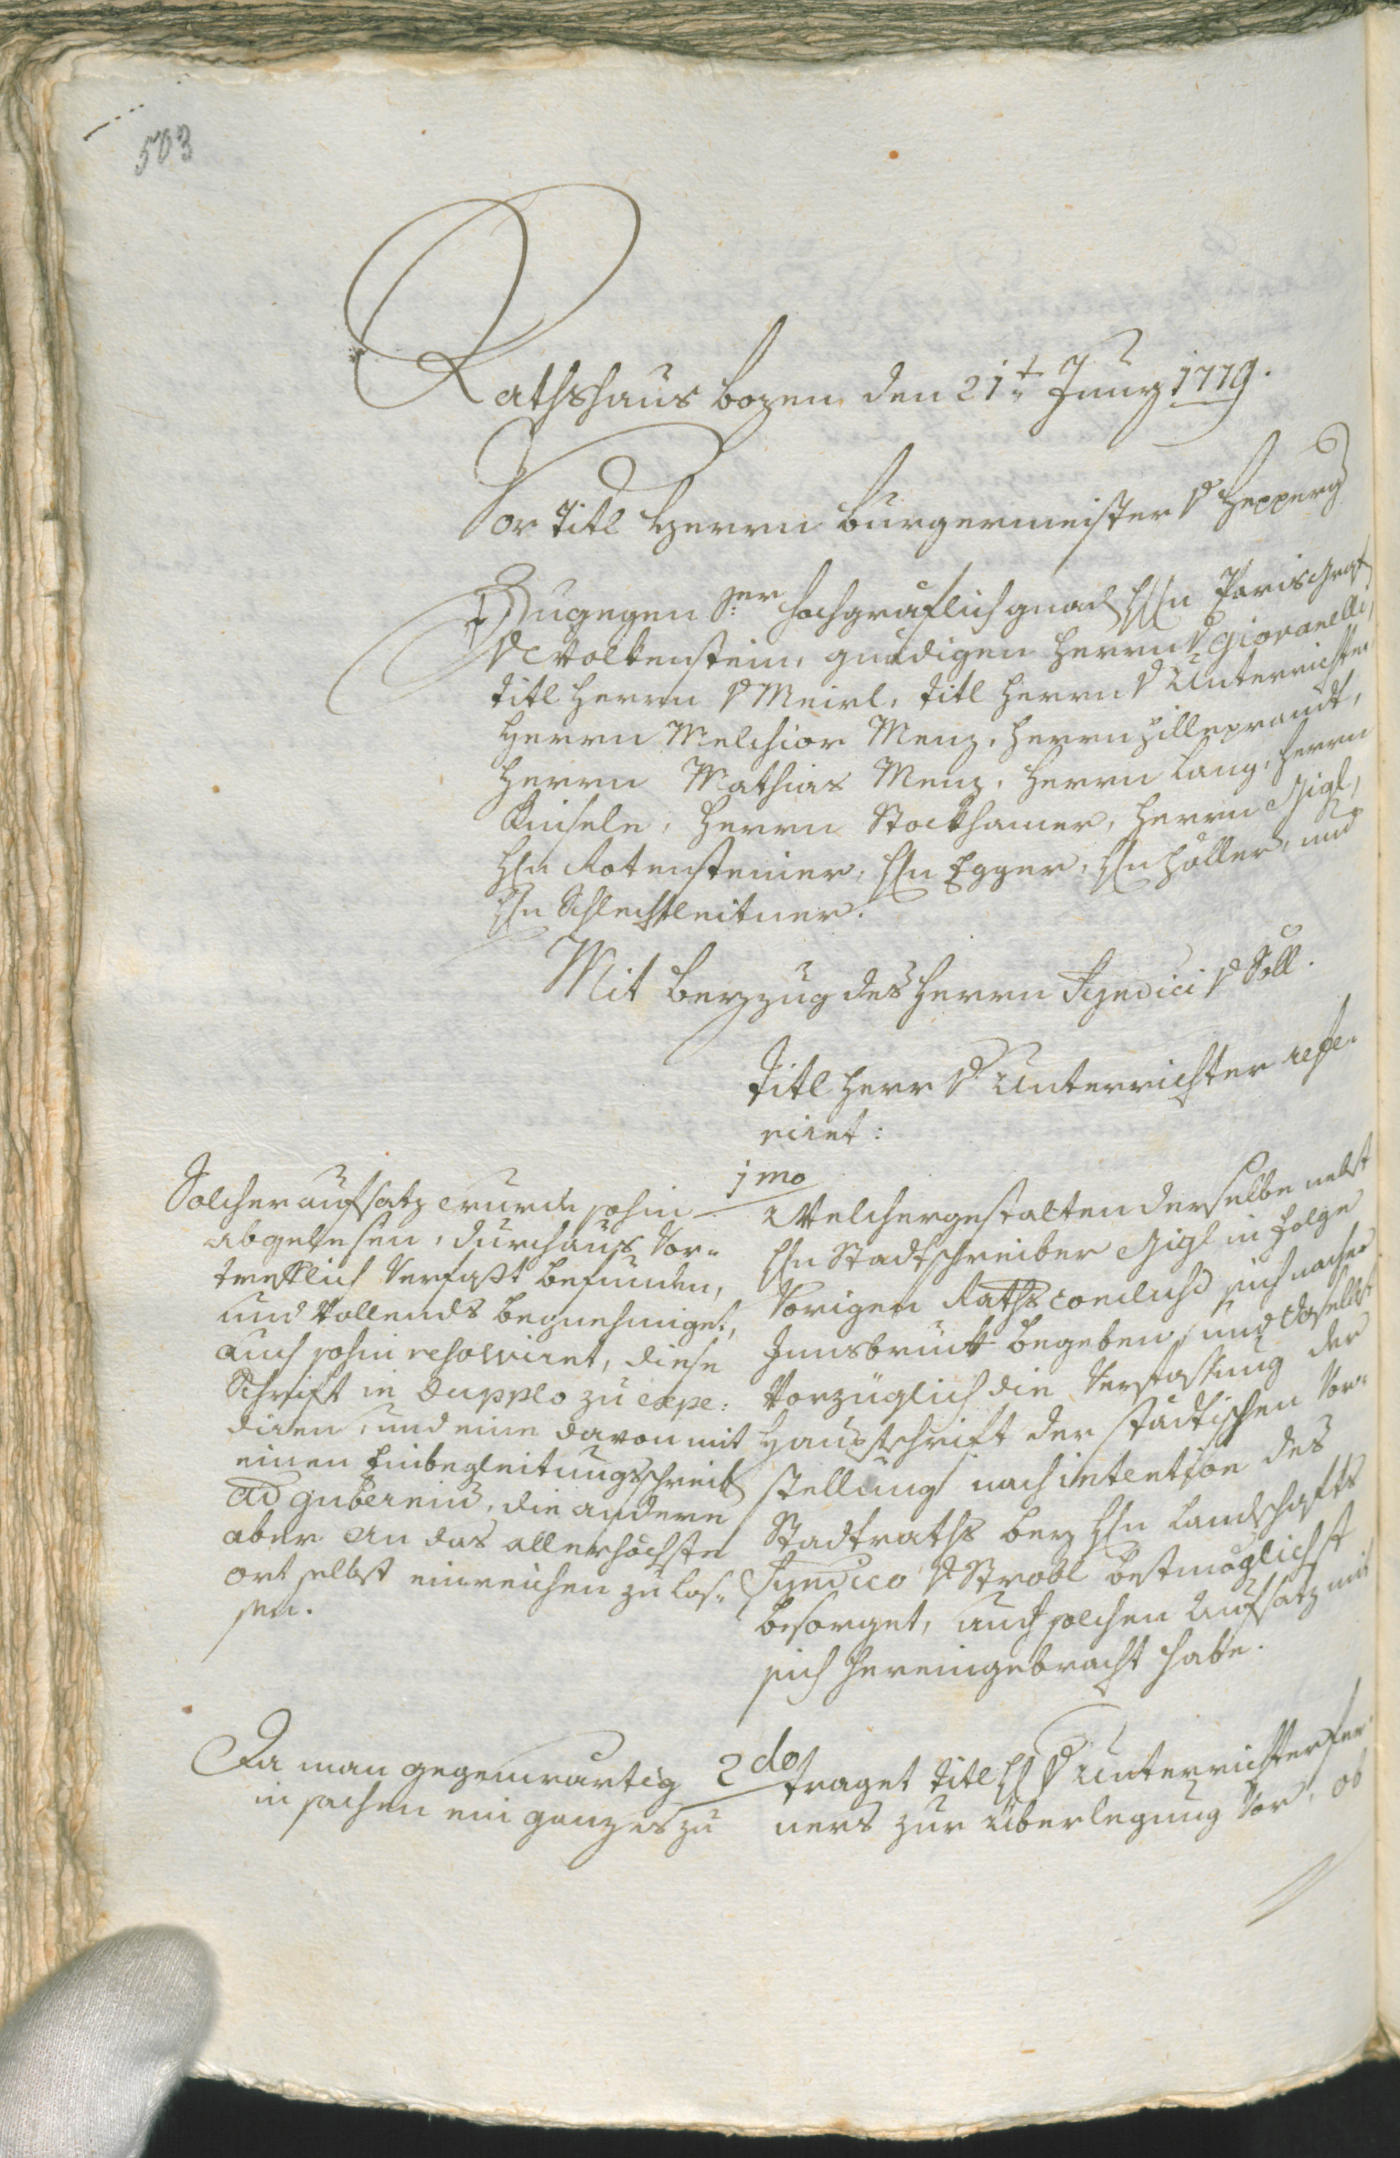 503
Rathshaus bozen den 21t Juny 1779.
Vor Titl Herrn burgermeister v Hepperg
Zugegen Ser Hochgräflich gnad H Hn Paris Graf
v Wolkenstein, gnädigen Herrn v Giovanelli,
Titl Herrn v Meirl, Titl Herrn v Unterrichter
Herrn Melchior Menz, Herrn Hilleprandt,
Herrn Mathias Menz, Herrn Lang, Herrn
Kinsele, Herrn Stockhamer, Herrn Gigl,
Hn Rotensteiner, Hn Egger, Hn Höller, und
Hn Schlechtleitner.
Mit beyzug des Herrn Syndici v Söll.
Titl Herr v Unterrichter refe-
riret:
1mo
Welchergestalten derselbe nebst
Hn Stadtschreiber Gigl in Folge
Vorigen Raths conclusi sich nacher
Innsbruck begeben, und daselbst
Vorzüglich die Verfassung der
Hauptschrift der städtischen Vor-
stellung nach intention des
Stadtraths bey Hn Landschafts
Syndico v Strobl bestmöglichst
besorget, auch solchen Aufsatz mit
sich hereingebracht habe.
Solcher aufsatz wurde sohin
abgelesen, durchaus Vor-
treflich Verfaßt befunden,
und Vollends begnehmiget,
auch sohin resolviret, diese
Schrift in Dupplo zu expe:
diren, und eine davon mit
einen Einbegleitungsschreib
ad gubernium, die andere
aber an das allerhöchste
ort selbst einreichen zu las-
sen.
2do traget Titl H v Unterrichter fer-
ners zur Überlegung Vor, ob
Da man gegenwärtig
in sachen ein ganzes zu